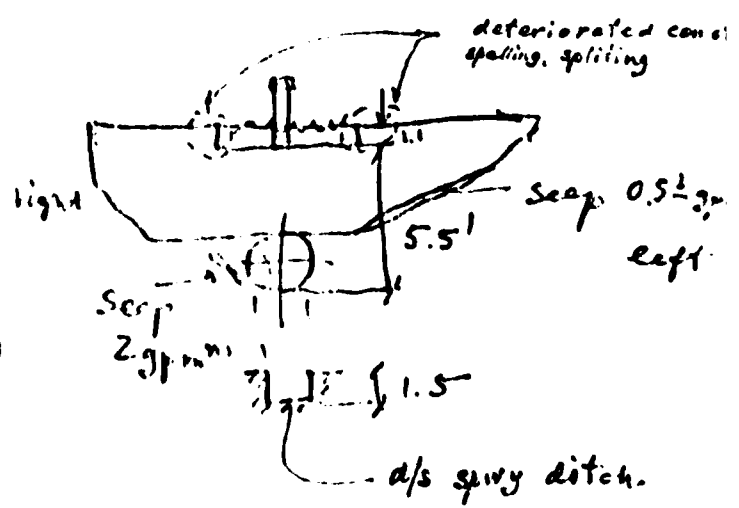 deteriorated
spalling, spliting
right
Seep 0.5±
5.5'
left
Seep
2 gpm
1.5
d/s spwy ditch.